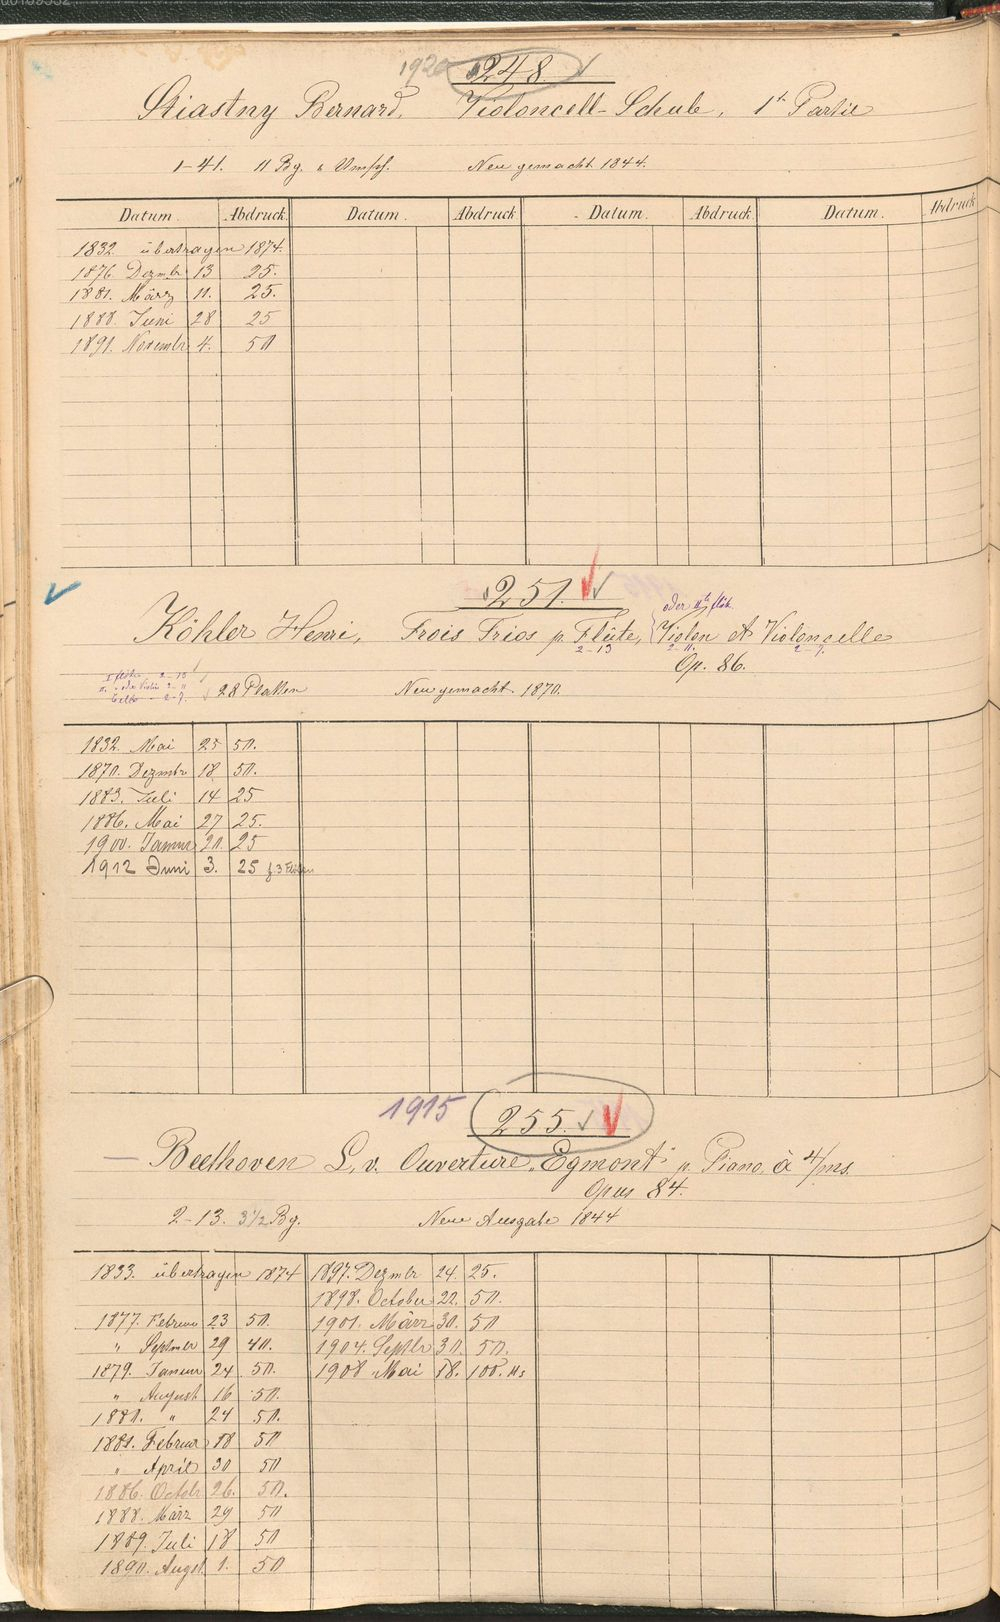 1920 248
Stiastny Bernard, Violoncell-Schule, 1te Partie
1-41. 11 Bg. Neu gemacht 1844.
Datum. Abdruck Datum. Abdruck Datum. Abdruck Datum. Abdruck
1832. übertragen 1874.
1876. Dezmbr 13 25.
1881. März 11. 25.
1888. Juni 28 25
1891. Novembr 4. 50
251.
oder IIte flöte
Köhler Henri, Trois Trios p. Flûte, Violon et Violoncelle
2-13 2-11. 2-7.
Op. 86.
I flöte 2-13
II. " oder Violin 2-11
Cello 2-7.
28 Platten Neu gemacht 1870.
1832. Mai 25 50.
1870. Dezmbr 18 50.
1883. Juli 14 25
1886. Mai 27 25.
1900. Januar 20. 25
1912 Juni 3. 25 f. 3 Flöten
1915 255.
Beethoven L. v. Ouverture „Egmont" p. Piano à 4/ms.
Opus 84.
2-13. 3 1/2 Bg. Neue Ausgabe 1844
1833. übertragen 1874 1897. Dezmbr 24. 25.
1898. October 22. 50.
1877. Februar 23 50. 1901. März 30. 50
" Septmber 29 40. 1904. Septbr 30. 50.
1879. Januar 24 50. 1908 Mai 18. 100.
" August 16 50.
1880. " 24 50.
1881. Februar 18 50
" April 30 50
1886. Octobr 26. 50.
1888. März 29 50
1889. Juli 18 50
1890. Augst 1. 50